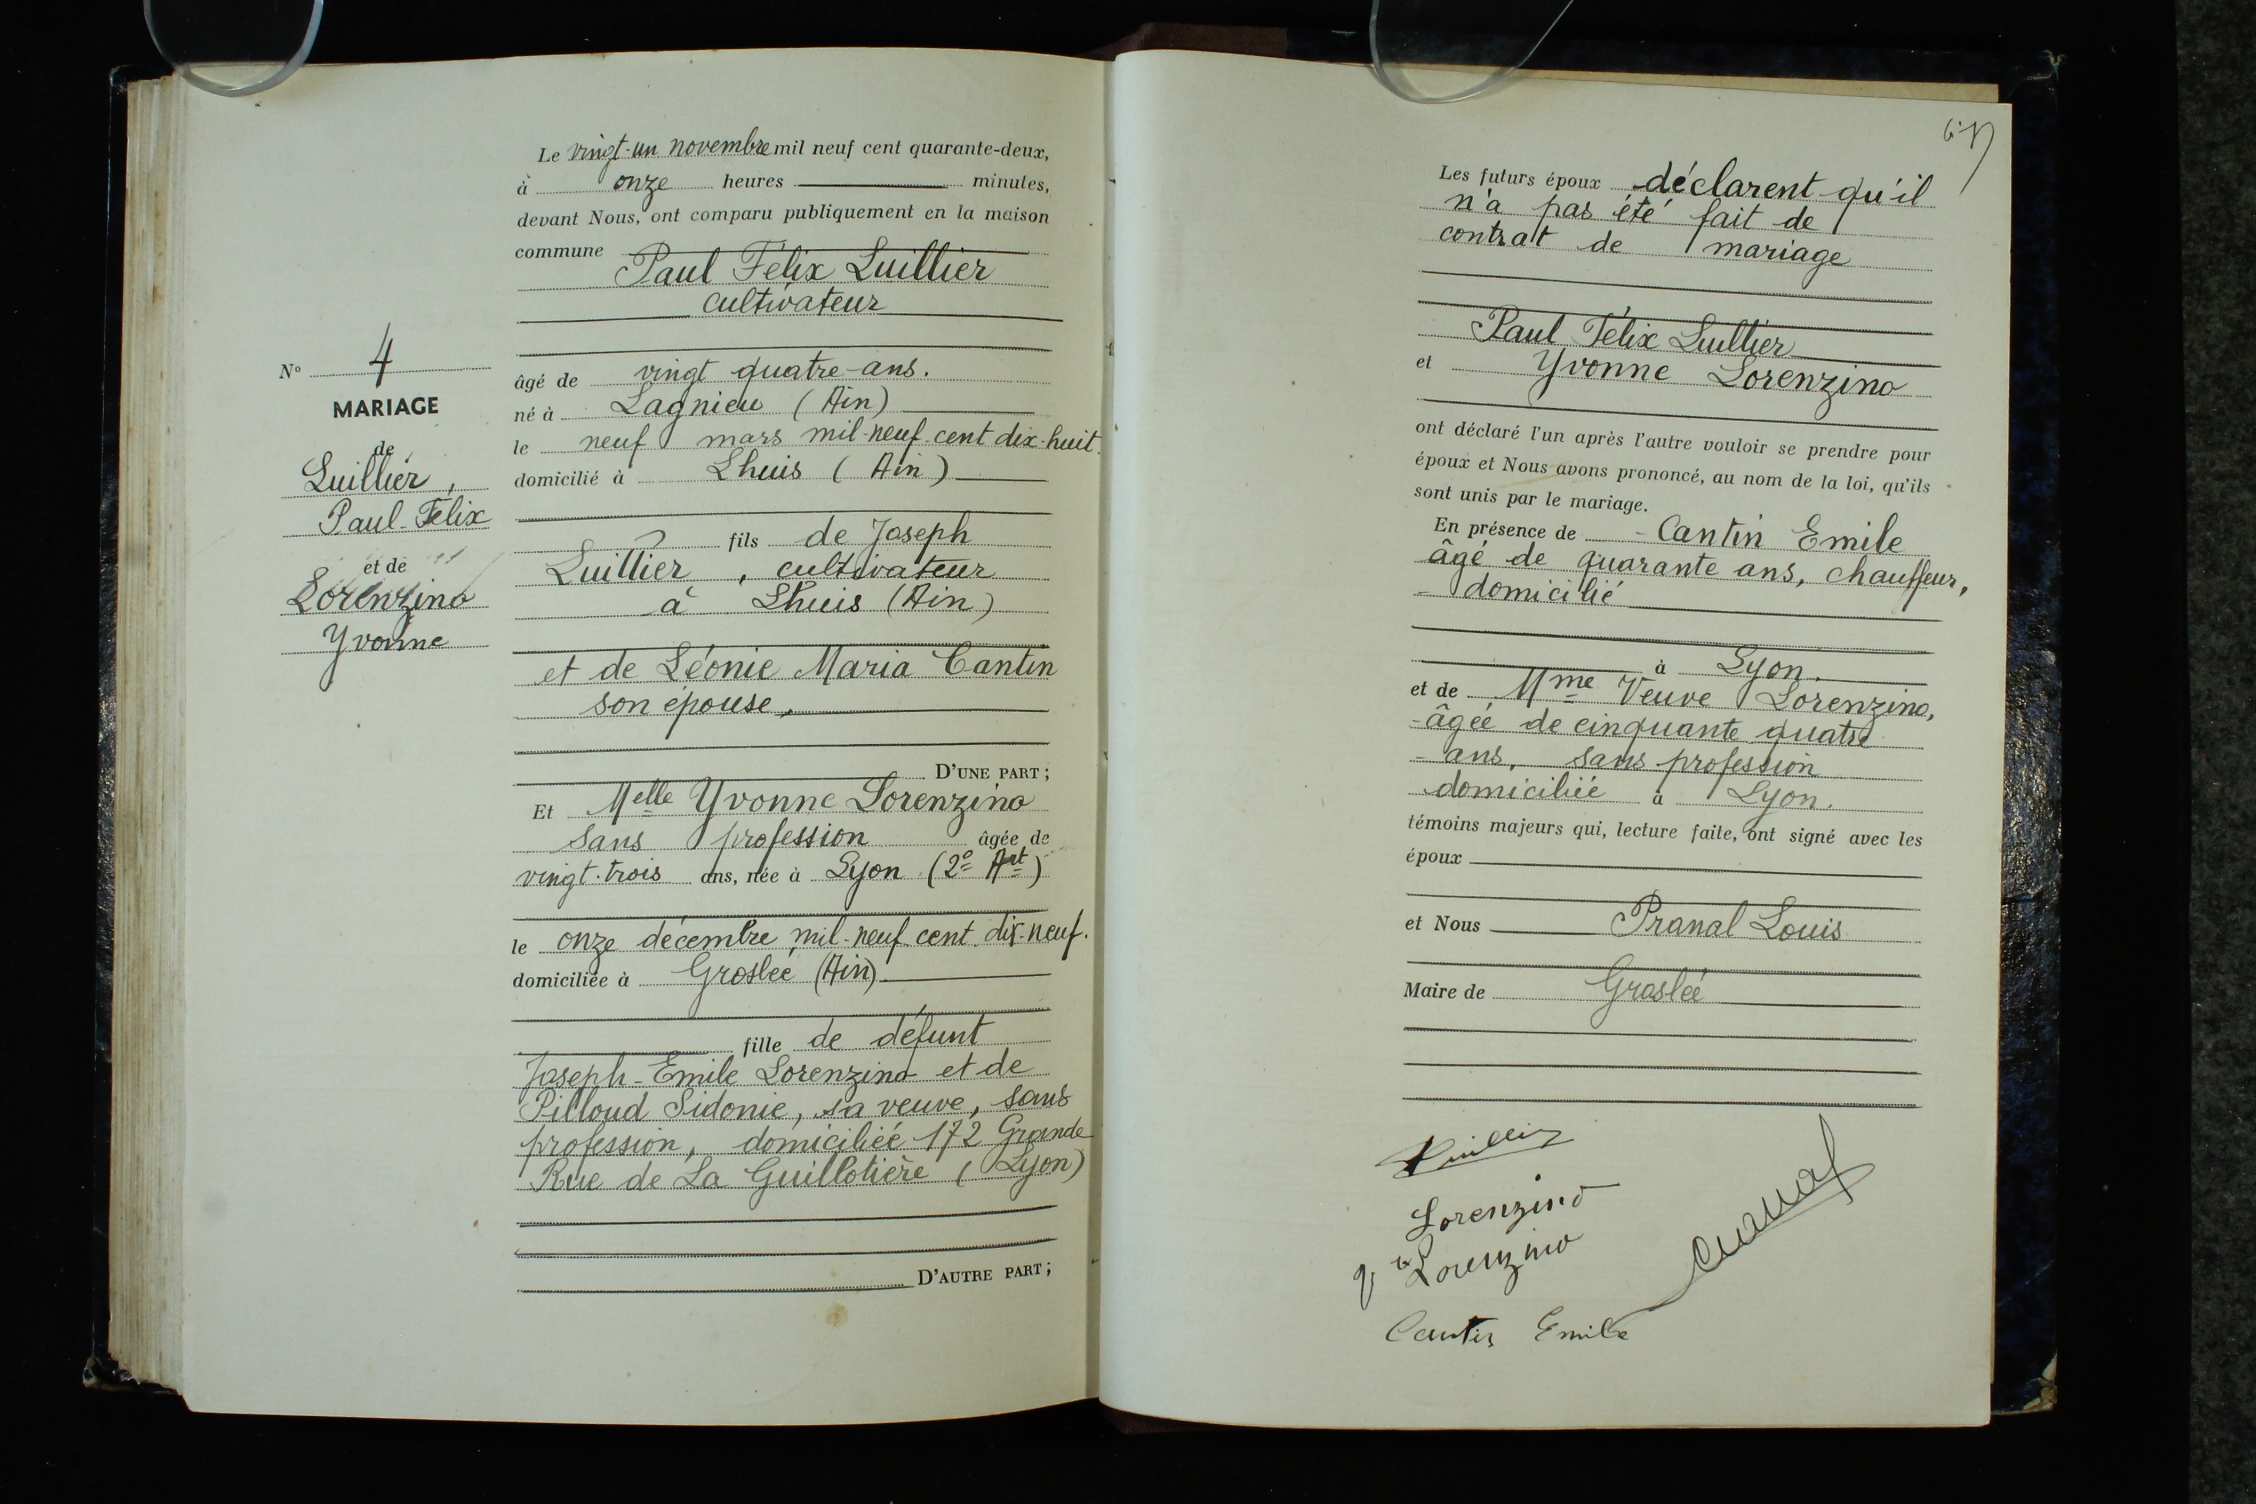 Le vingt-un novembre mil neuf cent quarante-deux,
à onze heures minutes,
devant Nous, ont comparu publiquement en la maison
commune
Paul Félix Luillier
cultivateur
âgé de vingt quatre ans.
né à Lagnieu (Ain)
le neuf mars mil-neuf-cent dix-huit.
domicilié à Lhuis (Ain)
fils de Joseph
Luillier, cultivateur
à Lhuis (Ain)
et de Léonie Maria Cantin
son épouse,
D'UNE PART ;
Et Melle Yvonne Lorenzino
sans profession âgée de
vingt-trois ans, née à Lyon (2e Art)
le onze décembre mil-neuf cent dix-neuf.
domiciliée à Groslée (Ain)
fille de défunt
Joseph-Emile Lorenzino et de
Pilloud Sidonie, sa veuve, sans
profession, domiciliée 172 Grande
Rue de La Guillotière (Lyon)
D'AUTRE PART ;
No 4
MARIAGE
de
Luillier,
Paul-Félix
et de
Lorenzino
Yvonne
Les futurs époux déclarent qu'il
n'a pas été fait de
contrat de mariage
Paul Félix Luillier
et Yvonne Lorenzino
ont déclaré l'un après l'autre vouloir se prendre pour
époux et Nous avons prononcé, au nom de la loi, qu'ils
sont unis par le mariage.
En présence de Cantin Emile
âgé de quarante ans, chauffeur,
domicilié
à Lyon.
et de Mme Veuve Lorenzino,
âgée de cinquante quatre
ans, sans profession
domiciliée à Lyon.
témoins majeurs qui, lecture faite, ont signé avec les
époux
et Nous Pranal Louis
Maire de Groslée
Luillier
Lorenzino
Lorenzino
Cantin Emile
Pranal